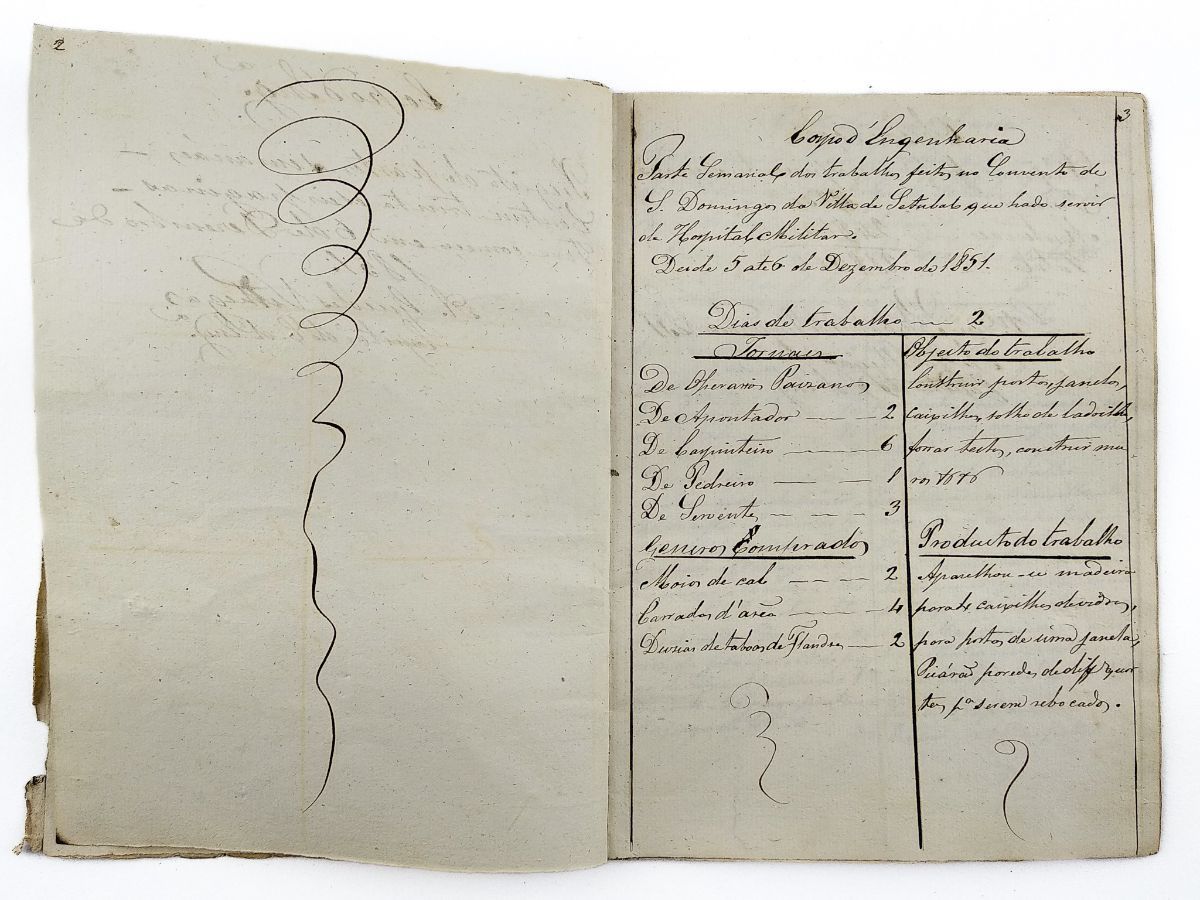 2
3
Corpo d'Engenharia
Parte Semanal dos trabalhos feitos no Convento de
S. Domingos da Villa de Setubal que hade servir
de Hospital Militar.
Desde 5 até 6 de Dezembro de 1851.
Dias de trabalho — 2
Jornaes
De Operarios Paizanos
De Apontador — — 2
De Carpinteiro — — 6
De Pedreiro — — 1
De Servente — — 3
Generos Comprados
Moios de cal — — 2
Carradas d'arêa — — 4
Duzias de taboas de Flandres — 2
Objecto do trabalho
Construir portas, janelas,
caixilhos, solho de ladrilho,
forrar tectos, construir mu
ros &c &c
Producto do trabalho
Aparelhou-se madeira
para caixilhos de vidros,
para portas de uma janela,
Picárão paredes de diff quar
tos pª serem rebocados.